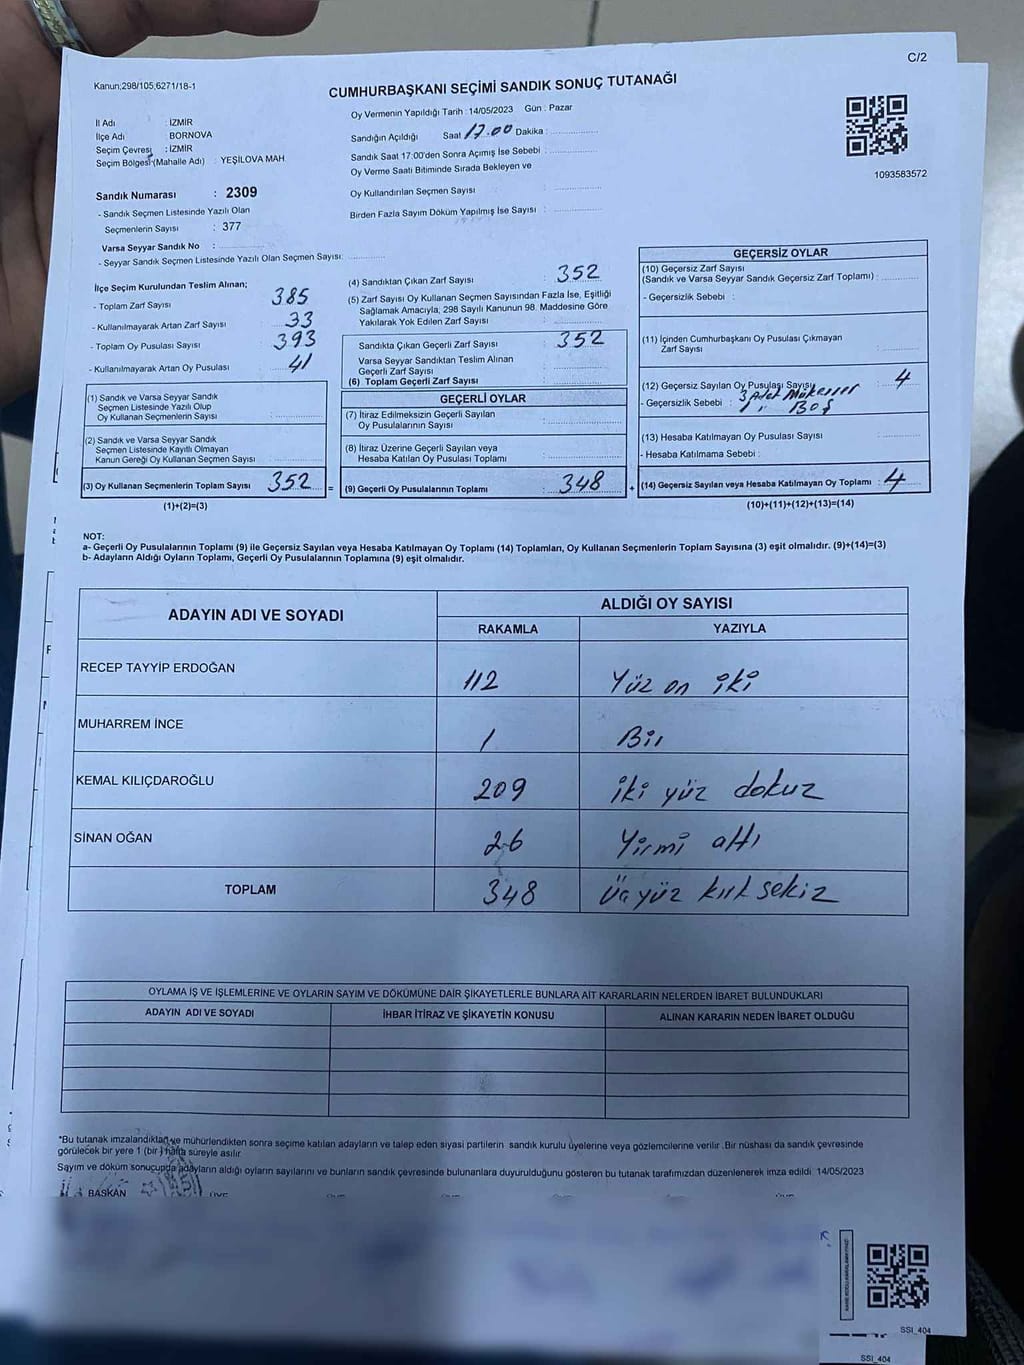 C/2
Kanun;298/105;6271/18-1
CUMHURBAŞKANI SEÇİMİ SANDIK SONUÇ TUTANAĞI
İl Adı : İZMİR
İlçe Adı : BORNOVA
Seçim Çevresi : İZMİR
Seçim Bölgesi (Mahalle Adı) : YEŞİLOVA MAH
Sandık Numarası : 2309
- Sandık Seçmen Listesinde Yazılı Olan
Seçmenlerin Sayısı : 377
Varsa Seyyar Sandık No :
- Seyyar Sandık Seçmen Listesinde Yazılı Olan Seçmen Sayısı:
Oy Vermenin Yapıldığı Tarih : 14/05/2023 Gün : Pazar
Sandığın Açıldığı Saat 17.00 Dakika :
Sandık Saat 17:00'den Sonra Açımış İse Sebebi :
Oy Verme Saati Bitiminde Sırada Bekleyen ve
Oy Kullandırılan Seçmen Sayısı :
Birden Fazla Sayım Döküm Yapılmış İse Sayısı :
1093583572
İlçe Seçim Kurulundan Teslim Alınan;
- Toplam Zarf Sayısı : 385
- Kullanılmayarak Artan Zarf Sayısı : 33
- Toplam Oy Pusulası Sayısı : 393
- Kullanılmayarak Artan Oy Pusulası : 41
(1) Sandık ve Varsa Seyyar Sandık
Seçmen Listesinde Yazılı Olup
Oy Kullanan Seçmenlerin Sayısı :
(2) Sandık ve Varsa Seyyar Sandık
Seçmen Listesinde Kayıtlı Olmayan
Kanun Gereği Oy Kullanan Seçmen Sayısı :
(3) Oy Kullanan Seçmenlerin Toplam Sayısı : 352
(1)+(2)=(3)
(4) Sandıktan Çıkan Zarf Sayısı : 352
(5) Zarf Sayısı Oy Kullanan Seçmen Sayısından Fazla İse, Eşitliği
Sağlamak Amacıyla; 298 Sayılı Kanunun 98. Maddesine Göre
Yakılarak Yok Edilen Zarf Sayısı :
Sandıkta Çıkan Geçerli Zarf Sayısı : 352
Varsa Seyyar Sandıktan Teslim Alınan
Geçerli Zarf Sayısı :
(6) Toplam Geçerli Zarf Sayısı :
GEÇERLİ OYLAR
(7) İtiraz Edilmeksizin Geçerli Sayılan
Oy Pusulalarının Sayısı :
(8) İtiraz Üzerine Geçerli Sayılan veya
Hesaba Katılan Oy Pusulası Toplamı :
= (9) Geçerli Oy Pusulalarının Toplamı : 348
GEÇERSİZ OYLAR
(10) Geçersiz Zarf Sayısı
(Sandık ve Varsa Seyyar Sandık Geçersiz Zarf Toplamı) :
- Geçersizlik Sebebi :
(11) İçinden Cumhurbaşkanı Oy Pusulası Çıkmayan
Zarf Sayısı :
(12) Geçersiz Sayılan Oy Pusulası Sayısı : 4
- Geçersizlik Sebebi : 3 Adet Mükerrer
1 " BOŞ
(13) Hesaba Katılmayan Oy Pusulası Sayısı :
- Hesaba Katılmama Sebebi :
+ (14) Geçersiz Sayılan veya Hesaba Katılmayan Oy Toplamı : 4
(10)+(11)+(12)+(13)=(14)
NOT:
a- Geçerli Oy Pusulalarının Toplamı (9) ile Geçersiz Sayılan veya Hesaba Katılmayan Oy Toplamı (14) Toplamları, Oy Kullanan Seçmenlerin Toplam Sayısına (3) eşit olmalıdır. (9)+(14)=(3)
b- Adayların Aldığı Oyların Toplamı, Geçerli Oy Pusulalarının Toplamına (9) eşit olmalıdır.
ADAYIN ADI VE SOYADI
ALDIĞI OY SAYISI
RAKAMLA YAZIYLA
RECEP TAYYİP ERDOĞAN 112 Yüz on iki
MUHARREM İNCE 1 Bir
KEMAL KILIÇDAROĞLU 209 iki yüz dokuz
SİNAN OĞAN 26 Yirmi altı
TOPLAM 348 Üç yüz kırk sekiz
OYLAMA İŞ VE İŞLEMLERİNE VE OYLARIN SAYIM VE DÖKÜMÜNE DAİR ŞİKAYETLERLE BUNLARA AİT KARARLARIN NELERDEN İBARET BULUNDUKLARI
ADAYIN ADI VE SOYADI İHBAR İTİRAZ VE ŞİKAYETİN KONUSU ALINAN KARARIN NEDEN İBARET OLDUĞU
*Bu tutanak imzalandıktan ve mühürlendikten sonra seçime katılan adayların ve talep eden siyasi partilerin sandık kurulu üyelerine veya gözlemcilerine verilir. Bir nüshası da sandık çevresinde
görülecek bir yere 1 (bir) hafta süreyle asılır
Sayım ve döküm sonucunda adayların aldığı oyların sayılarını ve bunların sandık çevresinde bulunanlara duyurulduğunu gösteren bu tutanak tarafımızdan düzenlenerek imza edildi 14/05/2023
BAŞKAN
SSI_404
SSI_404